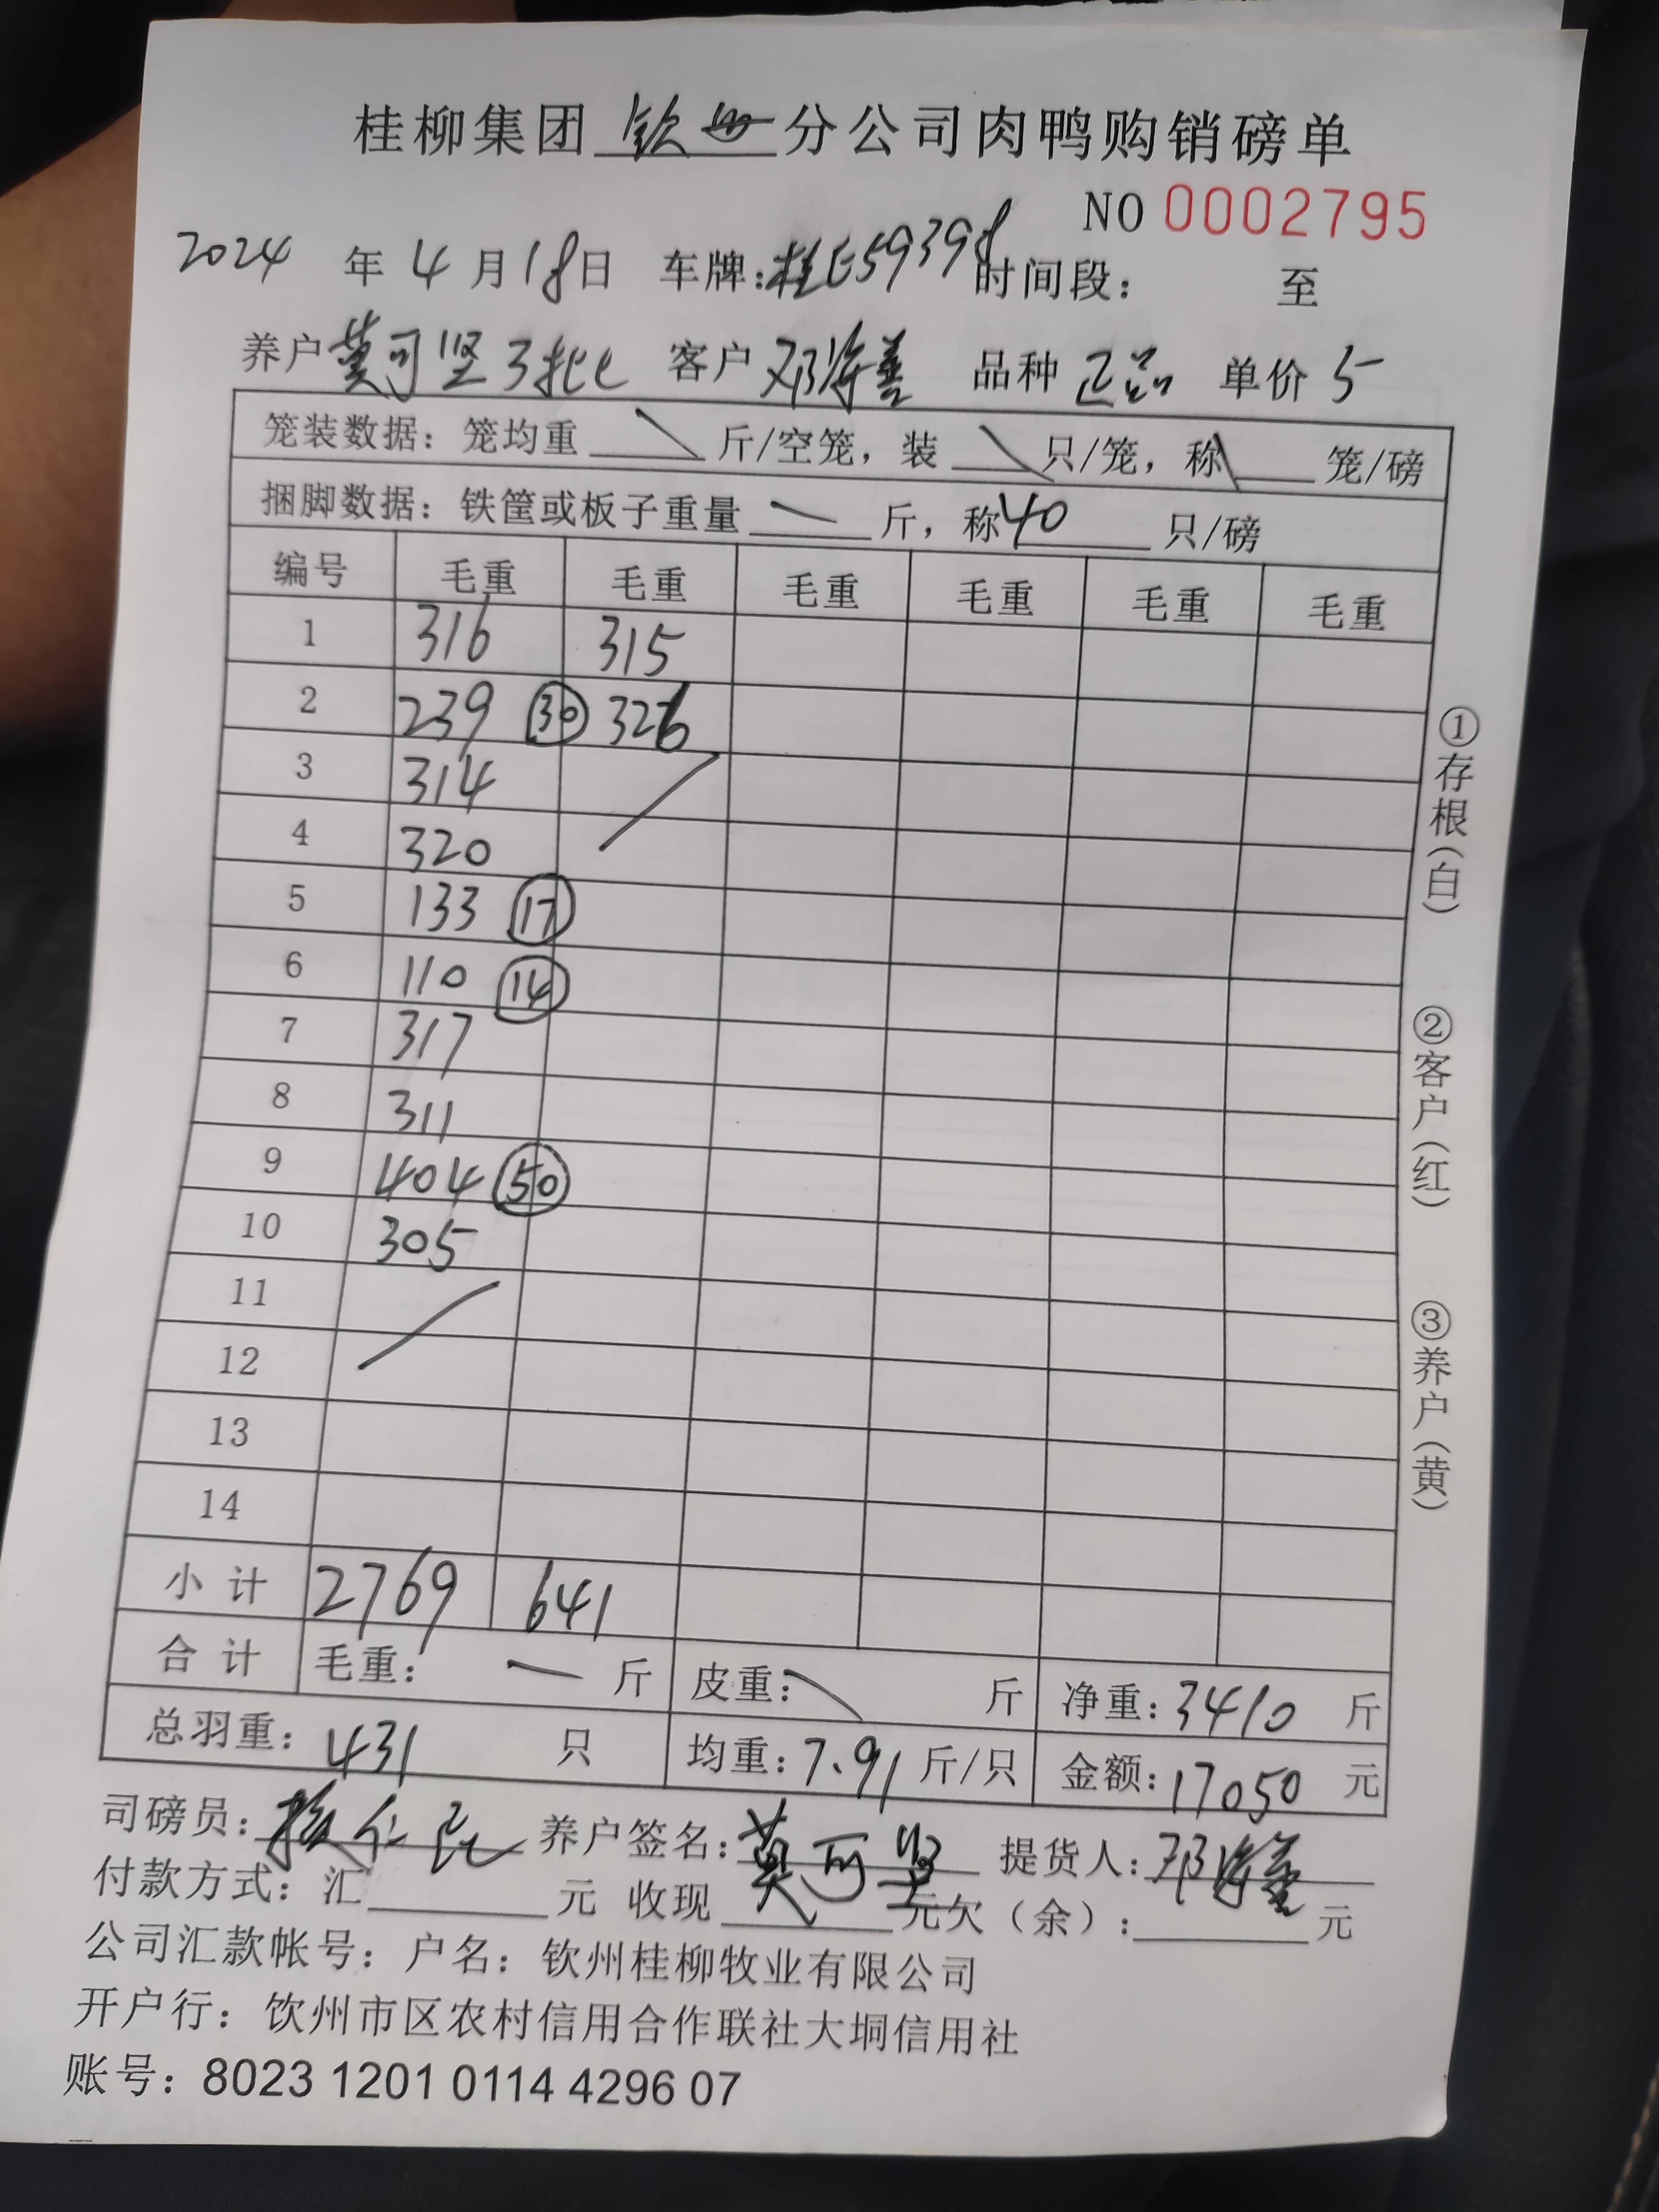 桂柳集团 钦州 分公司肉鸭购销磅单
NO 0002795
2024 年 4 月 18 日 车牌:桂E59398 时间段: 至
养户 莫可坚3批 客户 邓海善 品种 正品 单价 5
笼装数据: 笼均重 斤/空笼, 装 只/笼, 称 笼/磅
捆脚数据: 铁筐或板子重量 斤, 称 40 只/磅
编号 毛重 毛重 毛重 毛重 毛重 毛重
1 316 315
2 239 30 326
3 314
4 320
5 133 17
6 110 14
7 317
8 311
9 404 50
10 305
11
12
13
14
小计 2769 641
合计 毛重: 斤 皮重: 斤 净重: 3410 斤
总羽重: 431 只 均重: 7.91 斤/只 金额: 17050 元
司磅员: 养户签名: 莫可坚 提货人: 邓海善
付款方式: 汇 元 收现 元 欠(余): 元
公司汇款帐号: 户名: 钦州桂柳牧业有限公司
开户行: 饮州市区农村信用合作联社大垌信用社
账号: 8023 1201 0114 4296 07
①存根(白)
②客户(红)
③养户(黄)